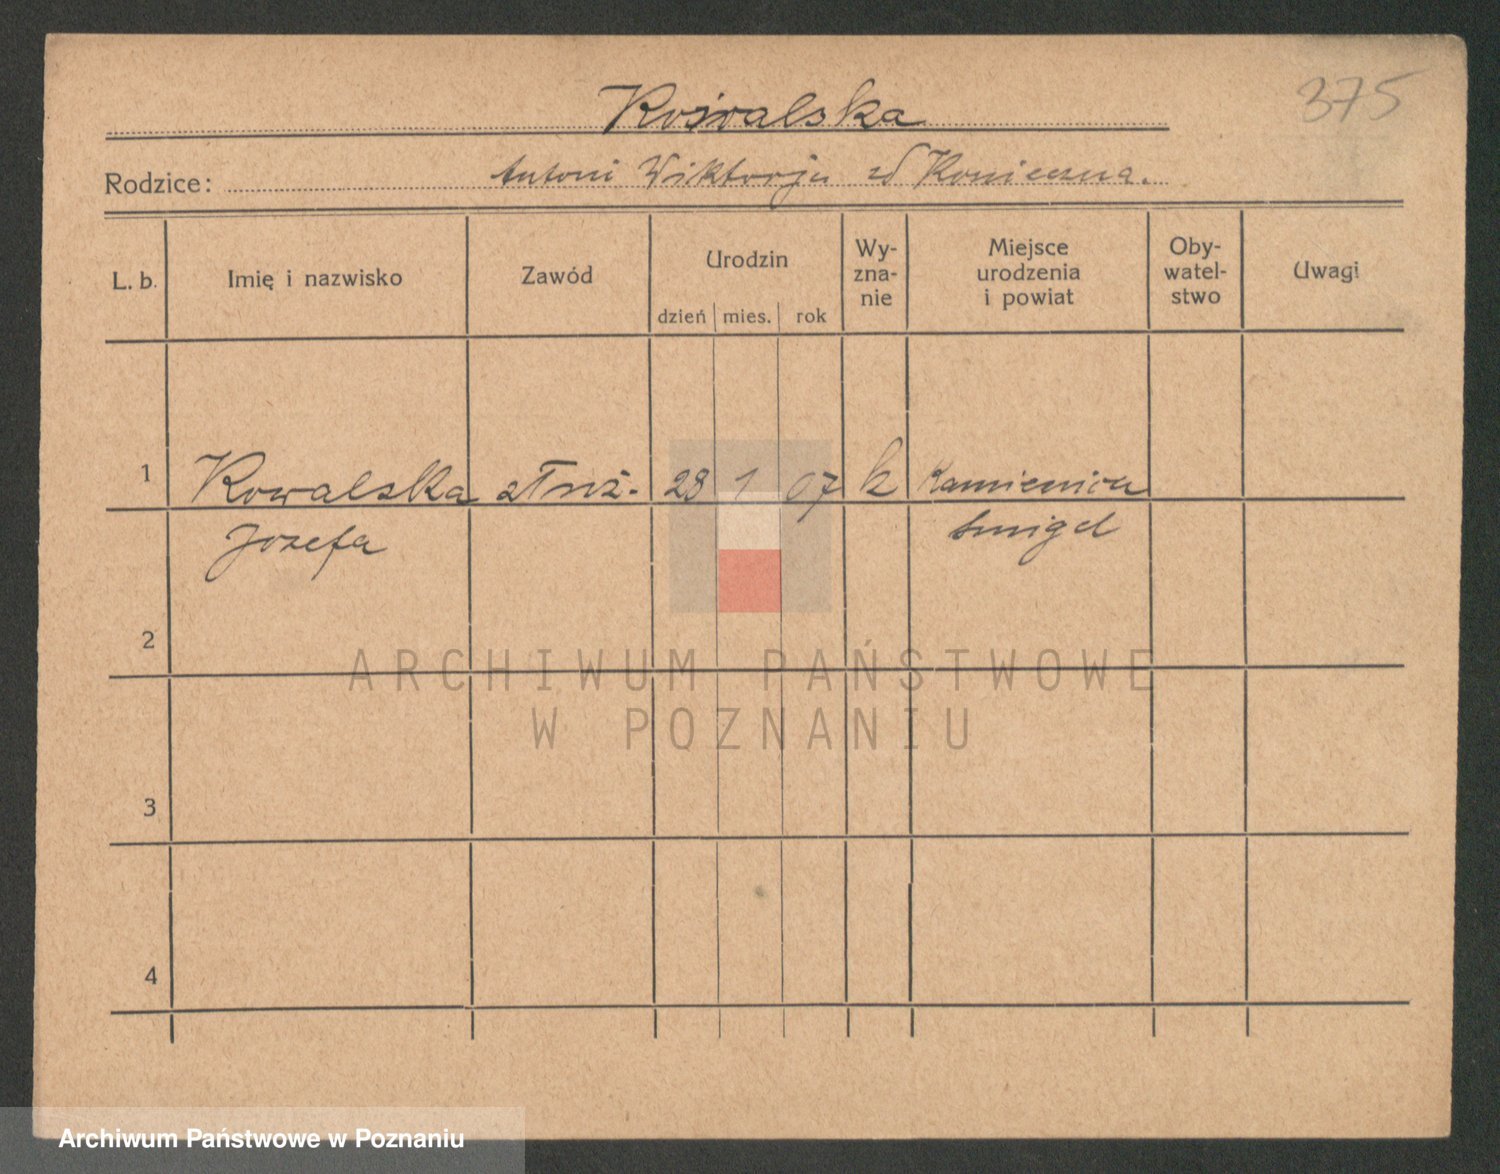 375
Kowalska
Rodzice: Antoni Wiktorja zd Konieczna.
L. b. Imię i nazwisko Zawód Urodzin dzień mies. rok Wy-zna-nie Miejsce urodzenia i powiat Oby-watel-stwo Uwagi
1 Kowalska służ. 28 1 07 k Kamienica
Józefa Smigel
2
3
4
ARCHIWUM PAŃSTWOWE
W POZNANIU
Archiwum Państwowe w Poznaniu